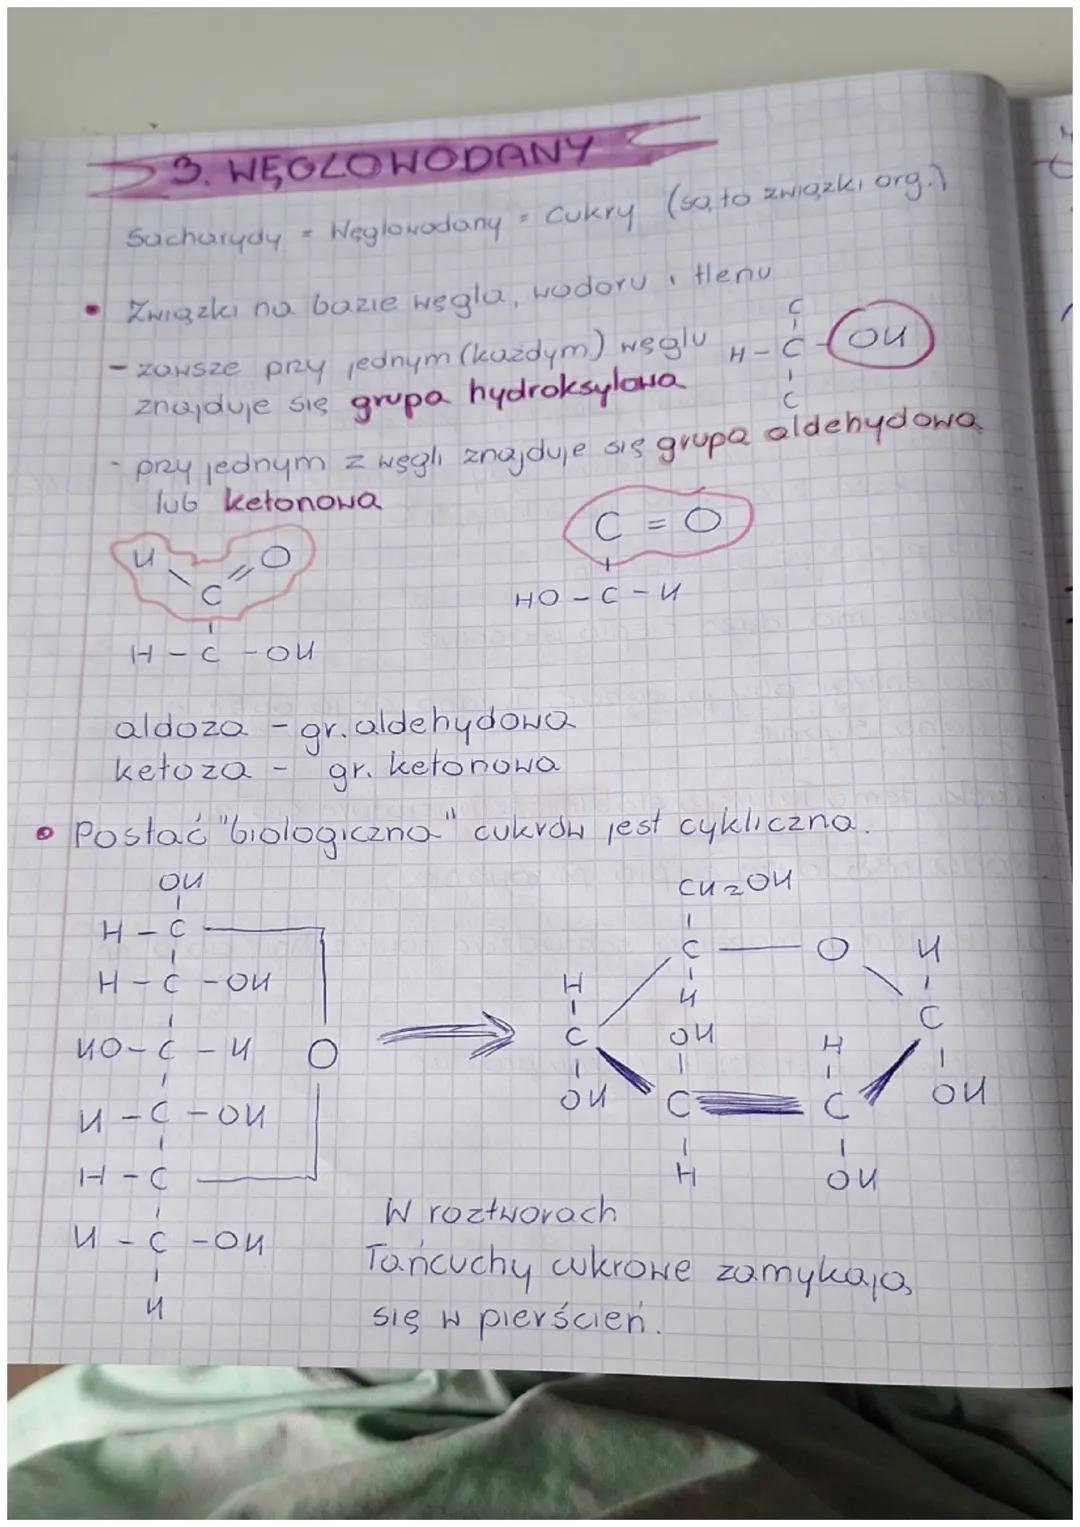 3. WĘGLOWODANY
Sacharydy = Węglowodany = Cukry (są to związki org.)
• Związki na bazie węgla, wodoru i tlenu
- zawsze przy jednym (każdym) węglu
znajduje się grupa hydroksylowa
C
H - C - OH
C
- przy jednym z węgli znajduje się grupa aldehydowa
lub ketonowa
H O
C
H - C - OH
C = O
HO - C - H
aldoza - gr. aldehydowa
ketoza - gr. ketonowa
• Postać "biologiczna" cukrów jest cykliczna.
OH
H - C
H - C - OH
HO - C - H O
H - C - OH
H - C
H - C - OH
H
CH2OH
C — O H
H H C
C OH H OH
OH C C
H OH
W roztworach
Łańcuchy cukrowe zamykają
się w pierścień.